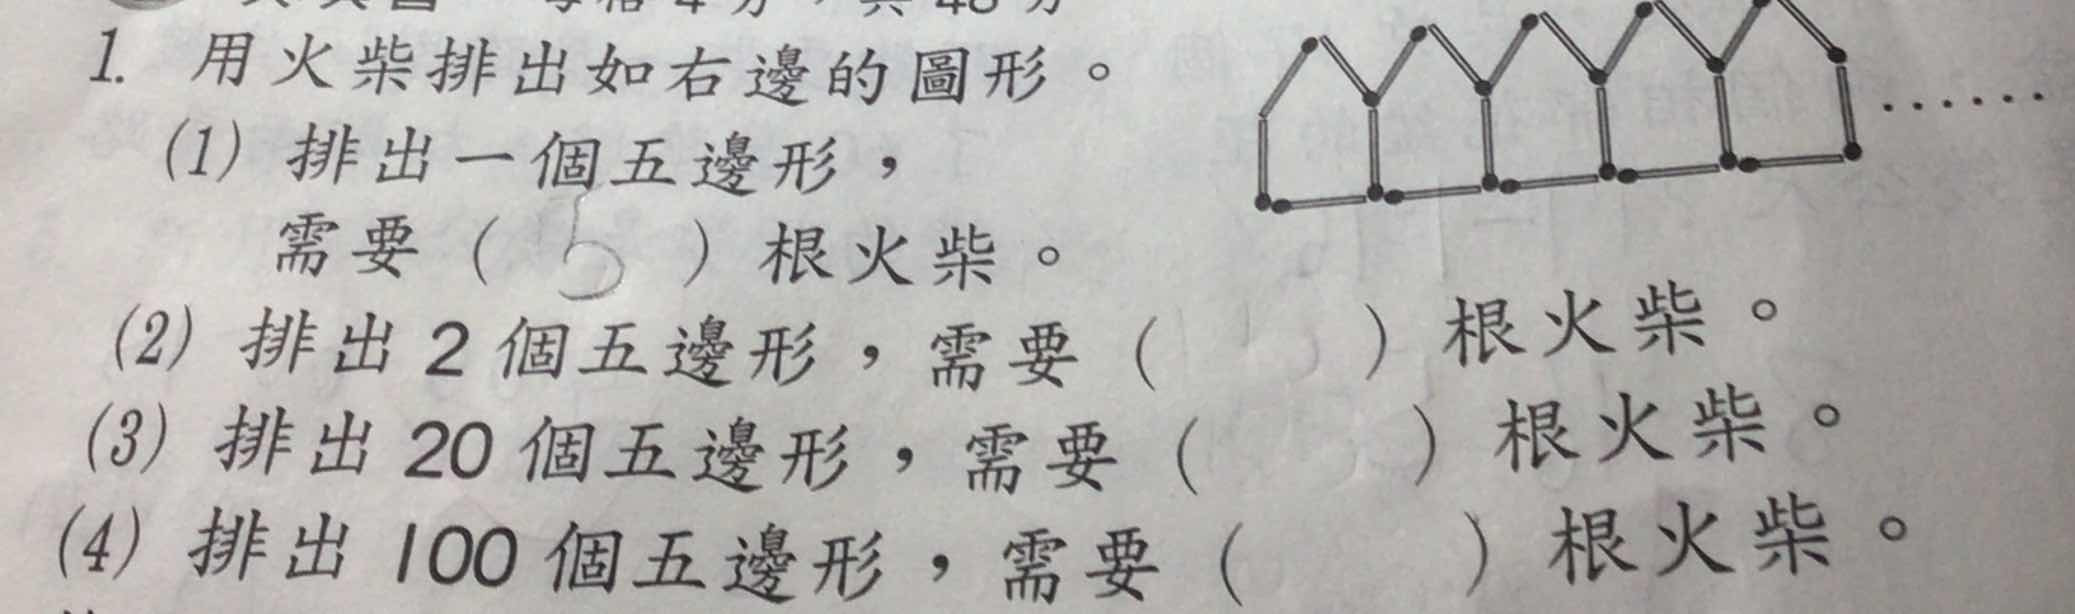 1. 用火柴排出如右邊的圖形。
(1) 排出一個五邊形，
需要 ( 5 ) 根火柴。
(2) 排出 2 個五邊形，需要 ( ) 根火柴。
(3) 排出 20 個五邊形，需要 ( ) 根火柴。
(4) 排出 100 個五邊形，需要 ( ) 根火柴。